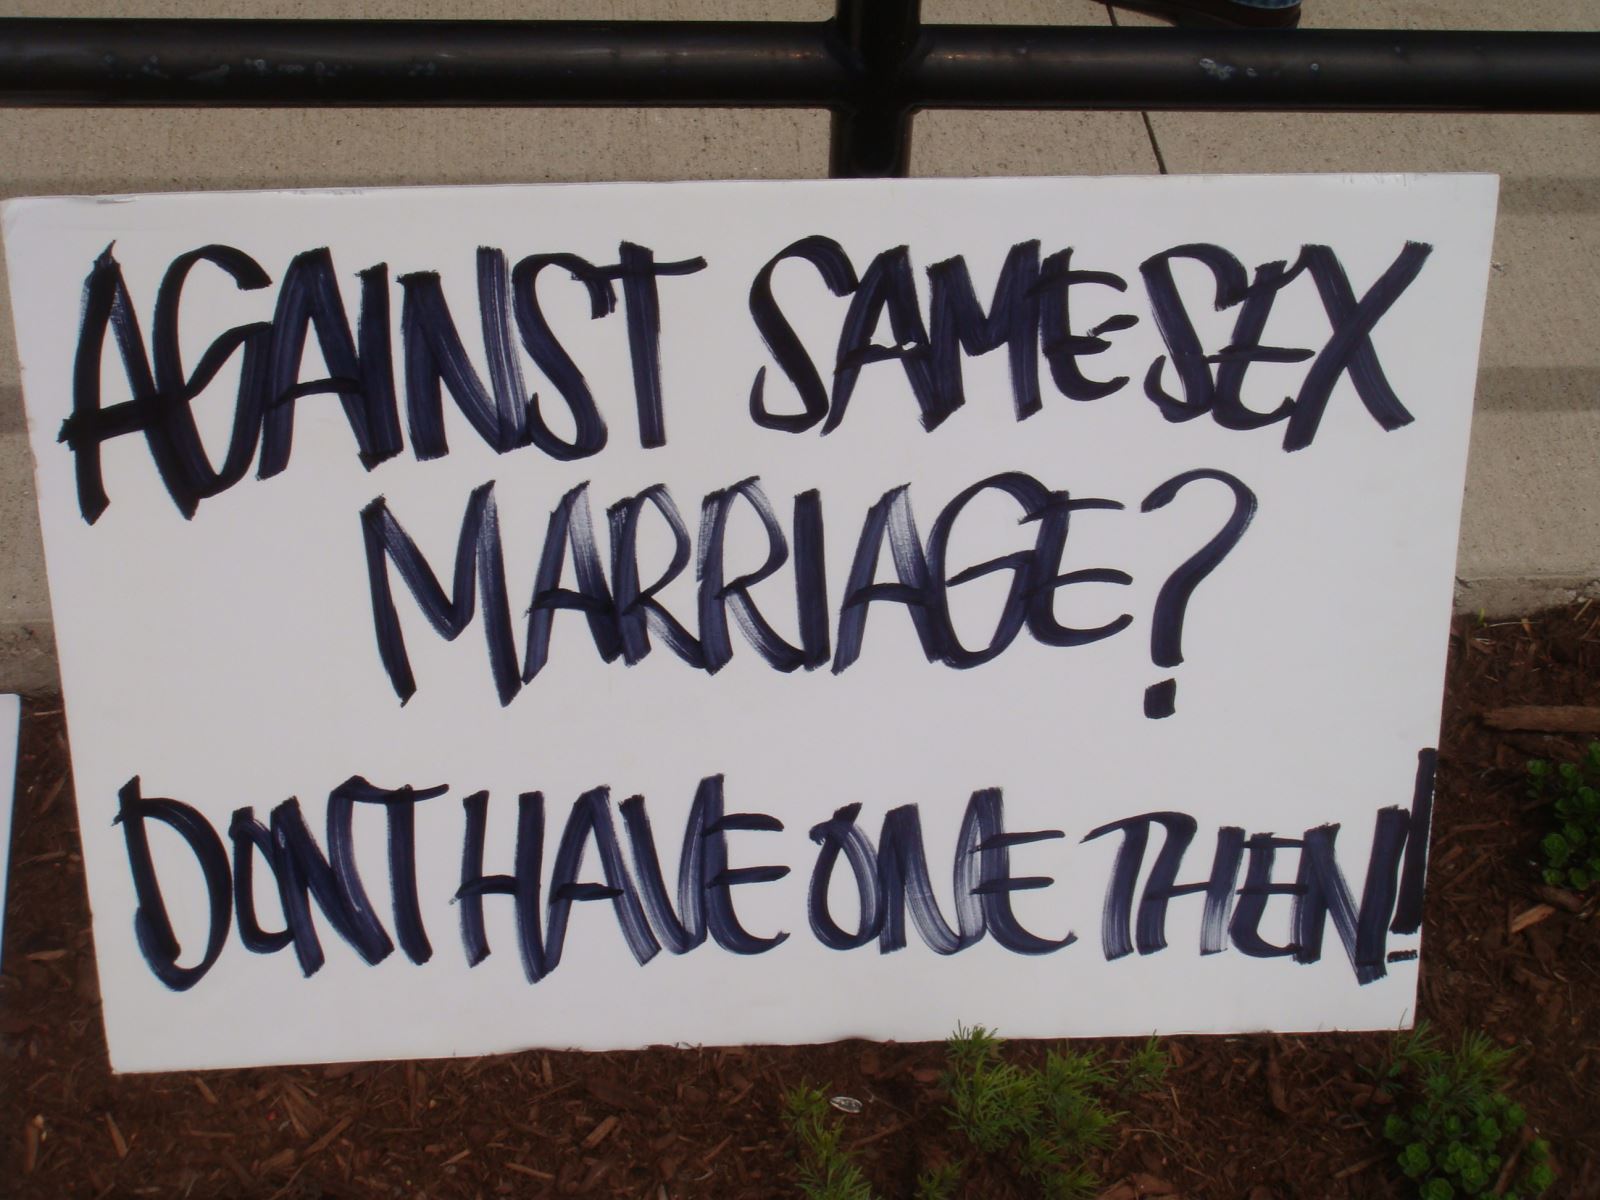 AGAINST SAME SEX
MARRIAGE?
DON'T HAVE ONE THEN!